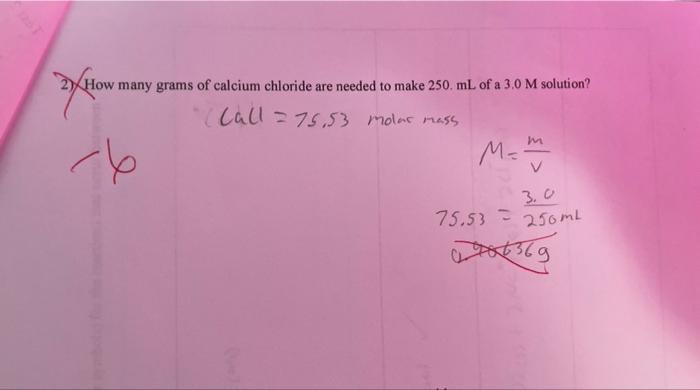 2) How many grams of calcium chloride are needed to make 250. mL of a 3.0 M solution?
CaCl = 75.53 molar mass
-6
M = m/v
75.53 = 3.0/250mL